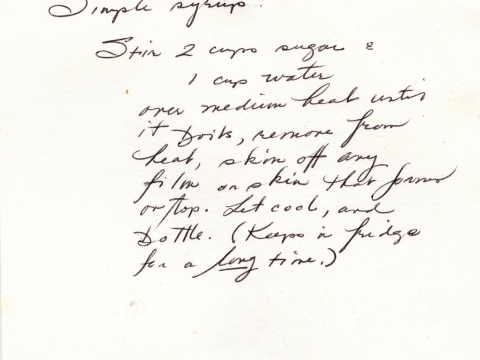 Simple syrup:
Stir 2 cups sugar &
1 cup water
over medium heat until
it boils, remove from
heat, skim off any
film or skin that forms
on top. Let cool, and
bottle. (Keeps in fridge
for a long time.)